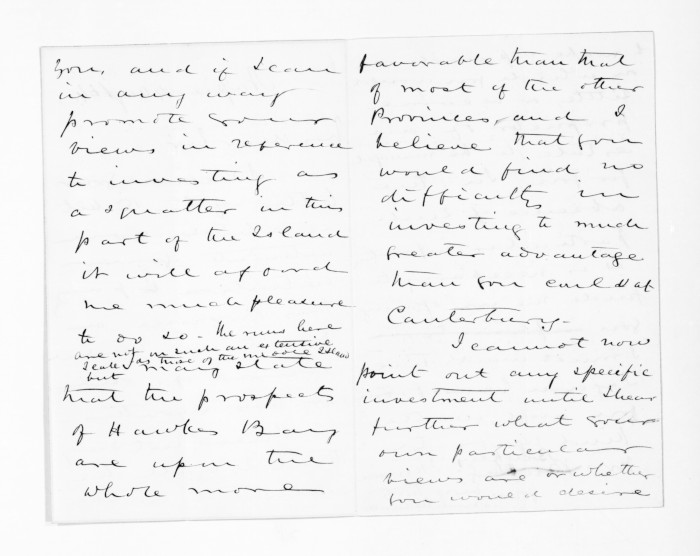 you, and if I can
in any way
promote your
views in reference
to investing as
a squatter in this
part of the Island
it will afford
me much pleasure
to do so - The runs here
are not on such an extensive
scale as those of the Middle Island
but may state
that the prospects
of Hawkes Bay
are upon the
whole more
favorable than that
of most of the other
Provinces, and I
believe that you
would find no
difficulty in
investing to much
greater advantage
than you could at
Canterbury -
I cannot now
point out any specific
investment until I hear
further what your
own particular
views are or whether
you would desire